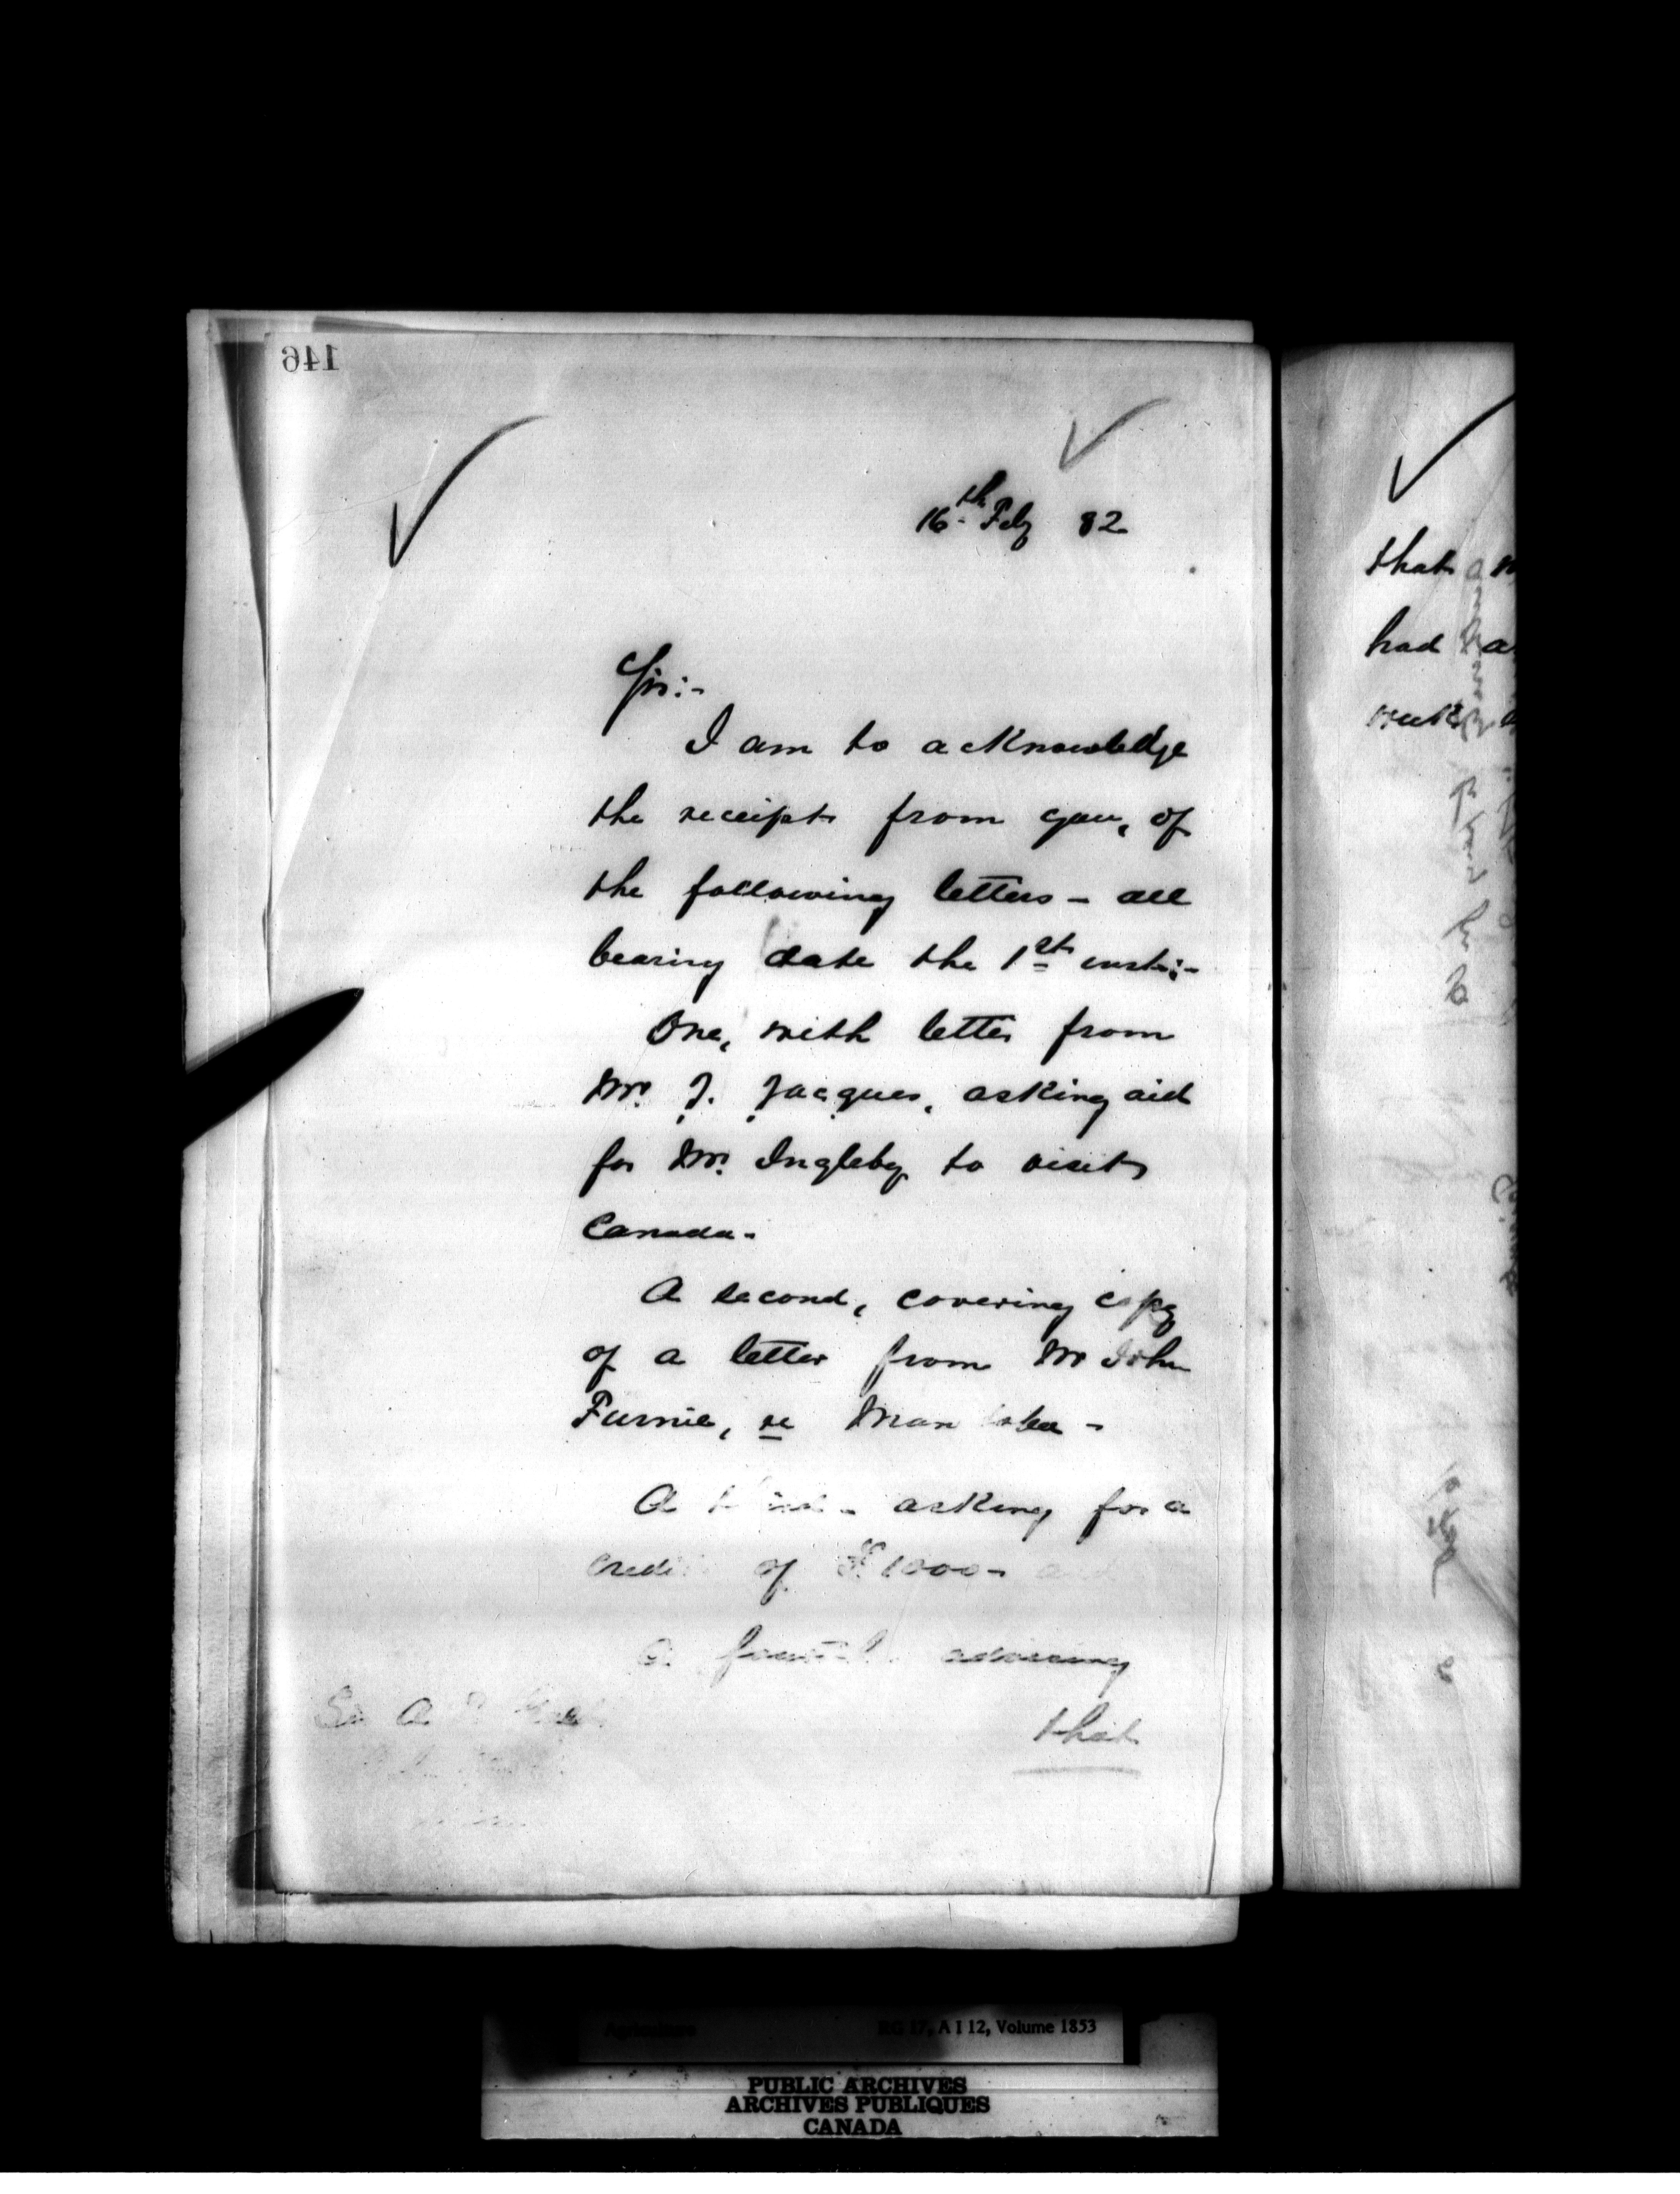 146
16th Feby 82
Sir:-
I am to acknowledge
the receipt from you, of
the following letters - all
bearing date the 1st inst:-
One, with letter from
Mr. J. Jacques, asking aid
for Mr. Ingleby to visit
Canada -
A second, covering copy
of a letter from Mr John
Furnie, re Man toba -
A asking for a
credit of £1000-
A fourth advising
that
Sir A
that
had
Agriculture RG 17, A I 12, Volume 1853
PUBLIC ARCHIVES
ARCHIVES PUBLIQUES
CANADA